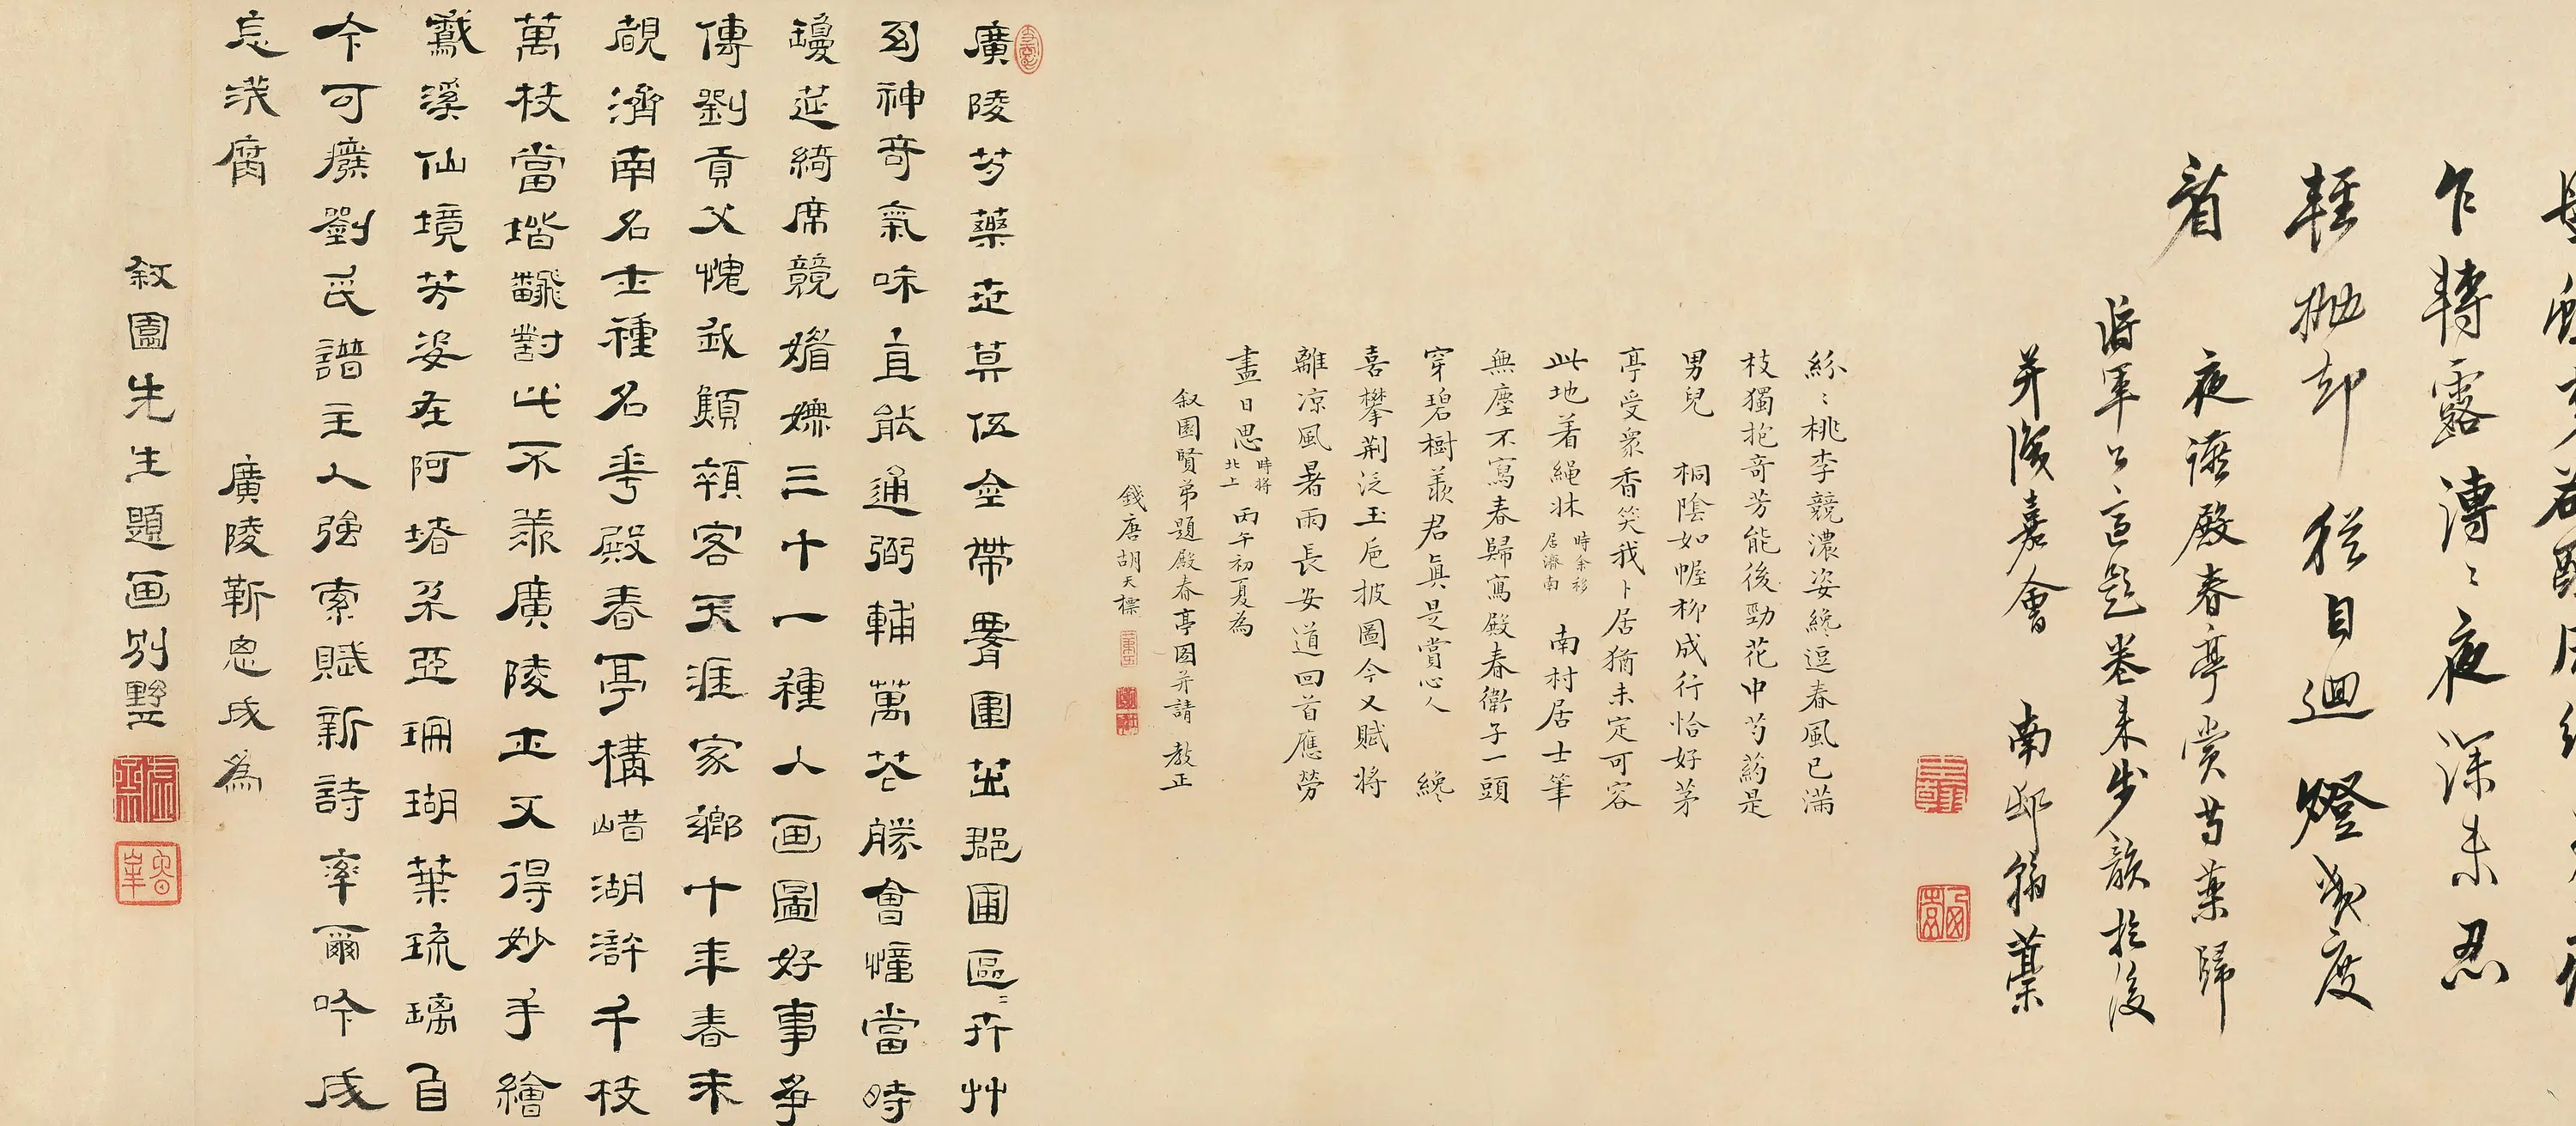 乍轉露漙〻夜深未忍
輕拋却從自迴燈幾度
看
夜讌殿春亭賞芍藥歸
將軍公題卷未步韻於後
并識嘉會 南邨翁藁
紛〻桃李競濃姿纔逗春風已滿
枝獨抱奇芳能後勁花中芍葯是
男兒 桐陰如幄柳成行恰好茅
亭受衆香笑我卜居猶未定可容
此地着繩牀時余移居濟南 南村居士筆
無塵不寫春歸寫殿春衛子一頭
穿碧樹羨君真是賞心人 纔
喜攀荆泛玉巵披圖今又賦將
離凉風暑雨長安道回首應勞
盡日思時將北上 丙午初夏為
叙園賢弟題殿春亭圖并請 教正
錢唐胡天標
廣陵芍藥世莫伍金帶圍茁郡圃區〻卉艸
到神奇氣味直能通弼輔萬花勝會憶當時
瓊莚綺席競嫮三十一種人画圖好事爭
傳劉貢父愧我顦顇客天涯家鄉十年春未
覩濟南名士種名花殿春亭構湖滸千枝
萬枝當堦翻對此不羨廣陵土又得妙手繪
溪仙境芳姿在阿堵朵亞珊瑚葉琉璃自
今可癈劉氏譜主人強索賦新詩率爾吟成
忘淺腐
廣陵靳恩成為
叙園先生題画別墅